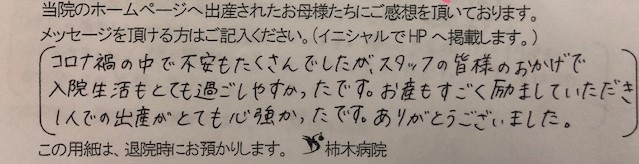 当院のホームページへ出産されたお母様たちにご感想を頂いております。
メッセージを頂ける方はご記入ください。(イニシャルでHPへ掲載します。)
コロナ禍の中で不安もたくさんでしたが、スタッフの皆様のおかげで
入院生活もとても過ごしやすかったです。お産もすごく励ましていただき
1人での出産がとても心強かったです。ありがとうございました。
この用紙は、退院時にお預かりします。 柿木病院